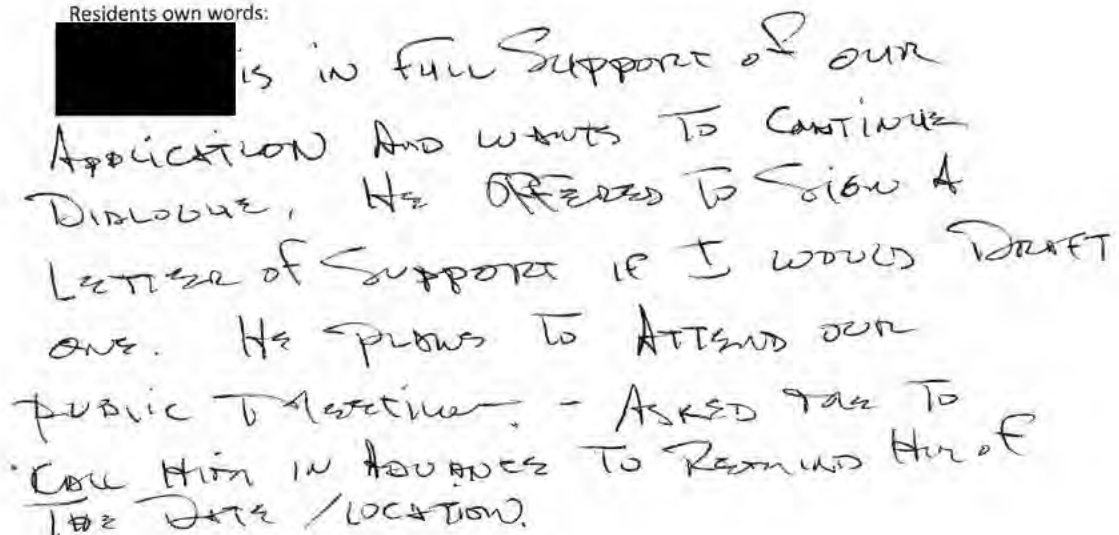 Residents own words:
is in full Support of our
Application And wants To Continue
Dialogue, He offered To Sign A
Letter of Support if I would Draft
one. He plans To Attend our
public Meeting - Asked me To
Call Him in Advance To Remind Him of
The Date / Location.